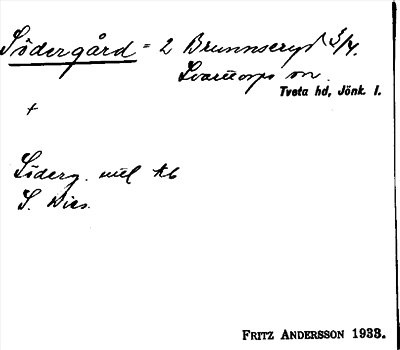 Södergård = 2 Brunnseryd 3/4.
Svarttorps sn.
Tveta hd, Jönk. l.
+
Söderg. uttl kb
S. Dics.
FRITZ ANDERSSON 1933.